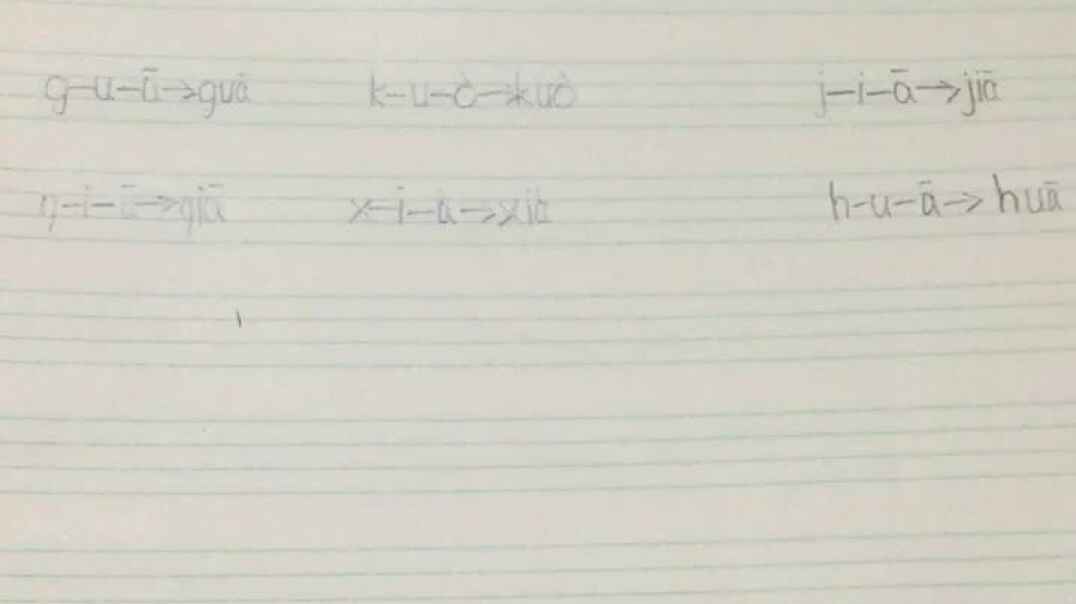 g-u-ā→guā k-u-ò→kuò j-i-ā→jiā
q-i-ā→qiā x-i-à→xià h-u-ā→huā